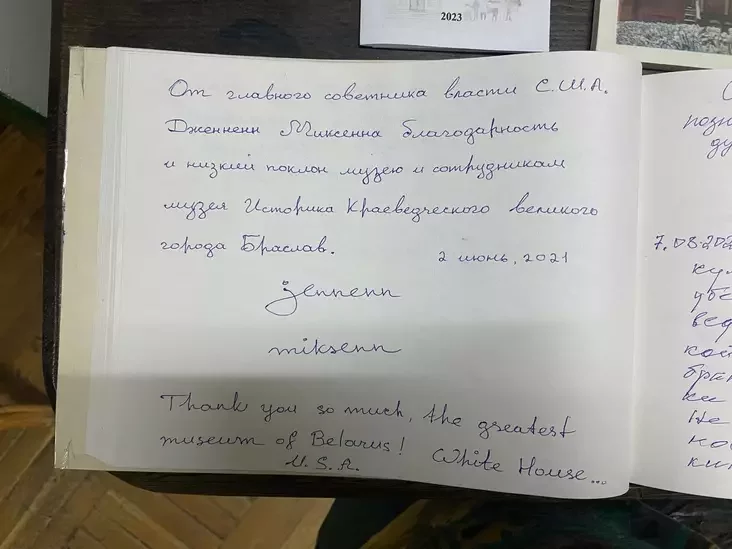 2023
От главного советника власти С.Ш.А.
Дженненн Миксенна благодарность
и низкий поклон музею и сотрудникам
музея Историка Краеведческого великого
города Браслав.
2 июнь, 2021
jennenn
miksenn
Thank you so much, the greatest
museum of Belarus! White House...
U.S.A.
7.08.202